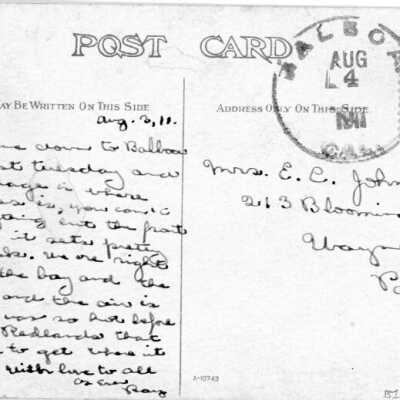 POST CARD
MAY BE WRITTEN ON THIS SIDE
ADDRESS ONLY ON THIS SIDE
BALBOA
AUG
4
1911
CAL.
Aug. 3, 11.
down to Balboa
Tuesday and
is where
is, you can't
out the front
it sets pretty
We are right
the bay and the
and the air is
was so hot before
Redlands that
to get where it
With love to all
as ever
Ray
Mrs. E. C. John
213 Bloomin
Way
A-10743